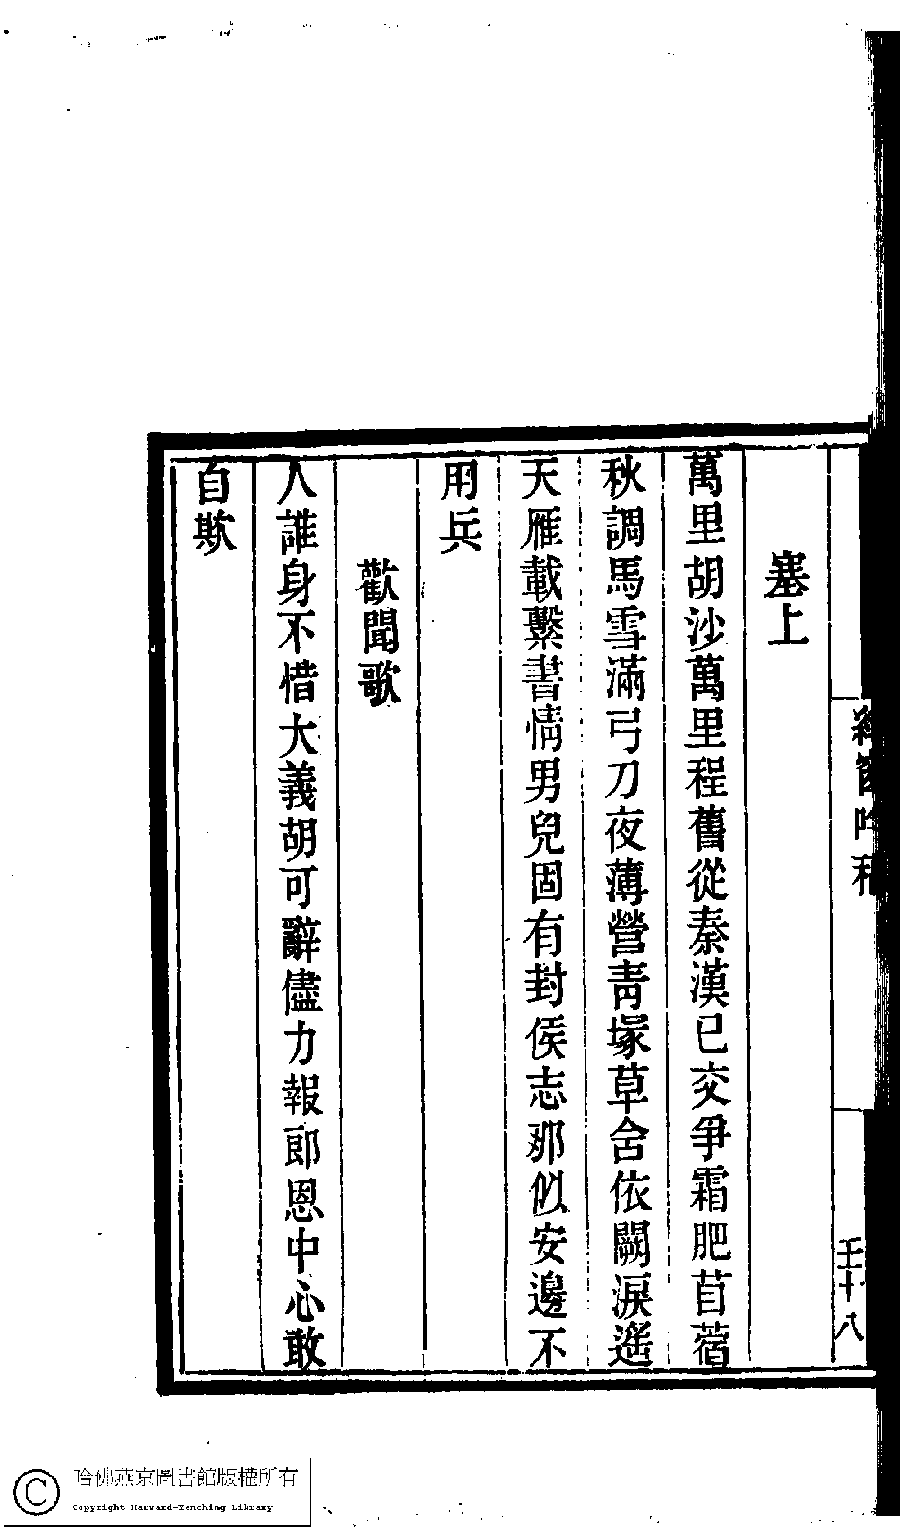 塞上
萬里胡沙萬里程舊從秦漢已交爭霜肥苜蓿
秋調馬雪滿弓刀夜薄營青塚草含依闕淚遙
天雁載繫書情男兒固有封侯志那似安邊不
用兵
歡聞歌
人誰身不惜大義胡可辭儘力報郎恩中心敢
自欺
吟稿
壬十八
哈佛燕京圖書館版權所有
Copyright Harvard-Yenching Library